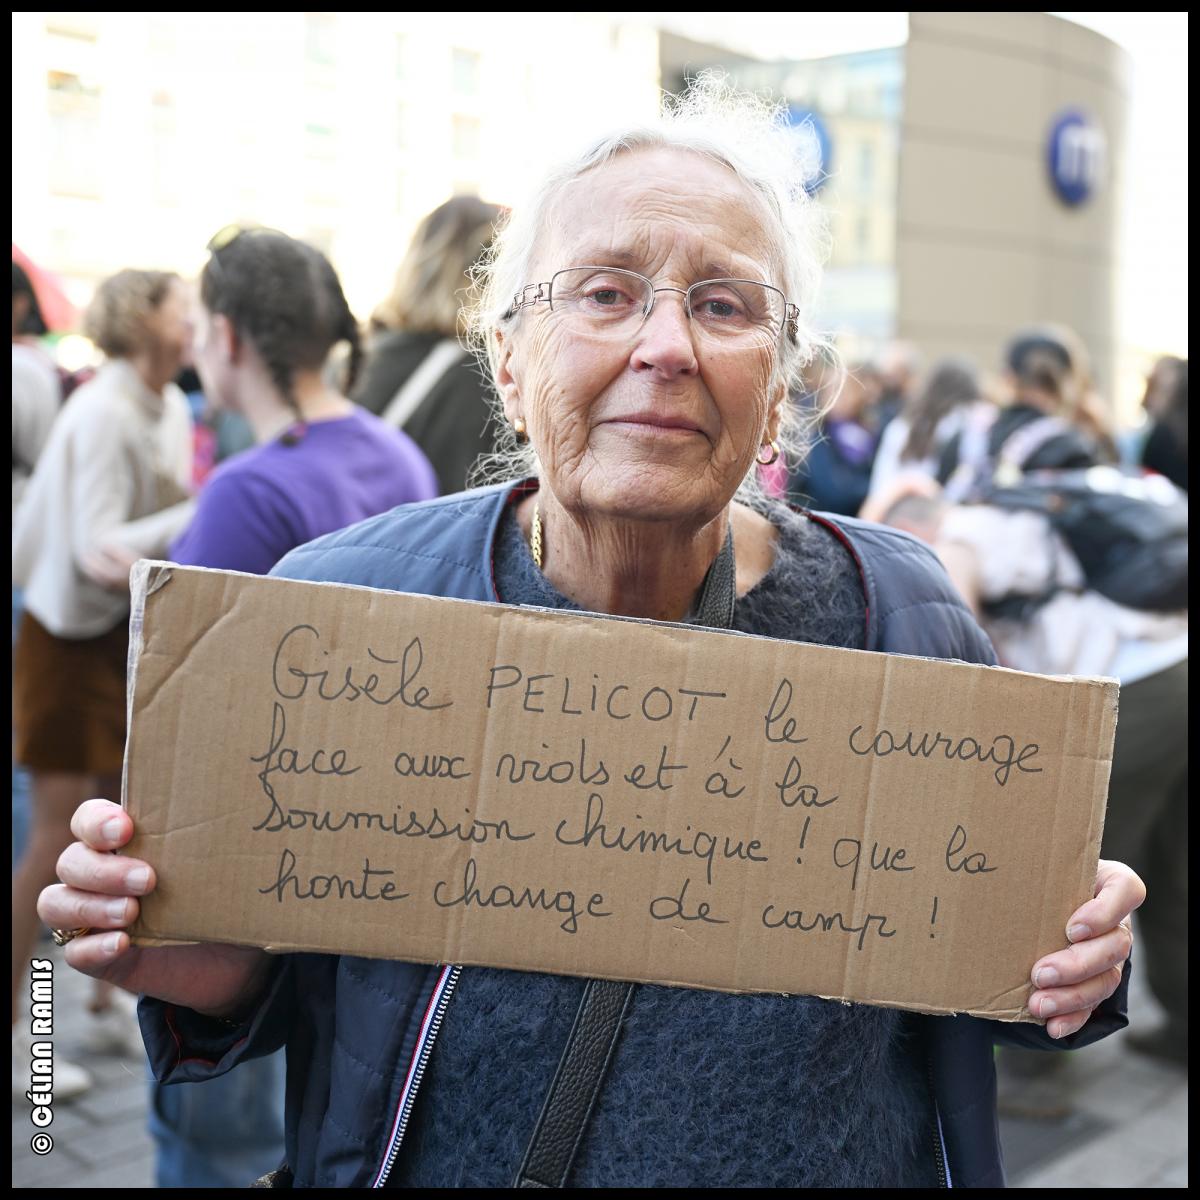 m
Gisèle PELICOT, le courage
face aux viols et à la
soumission chimique ! que la
honte change de camp !
© CÉLIAN RAMIS